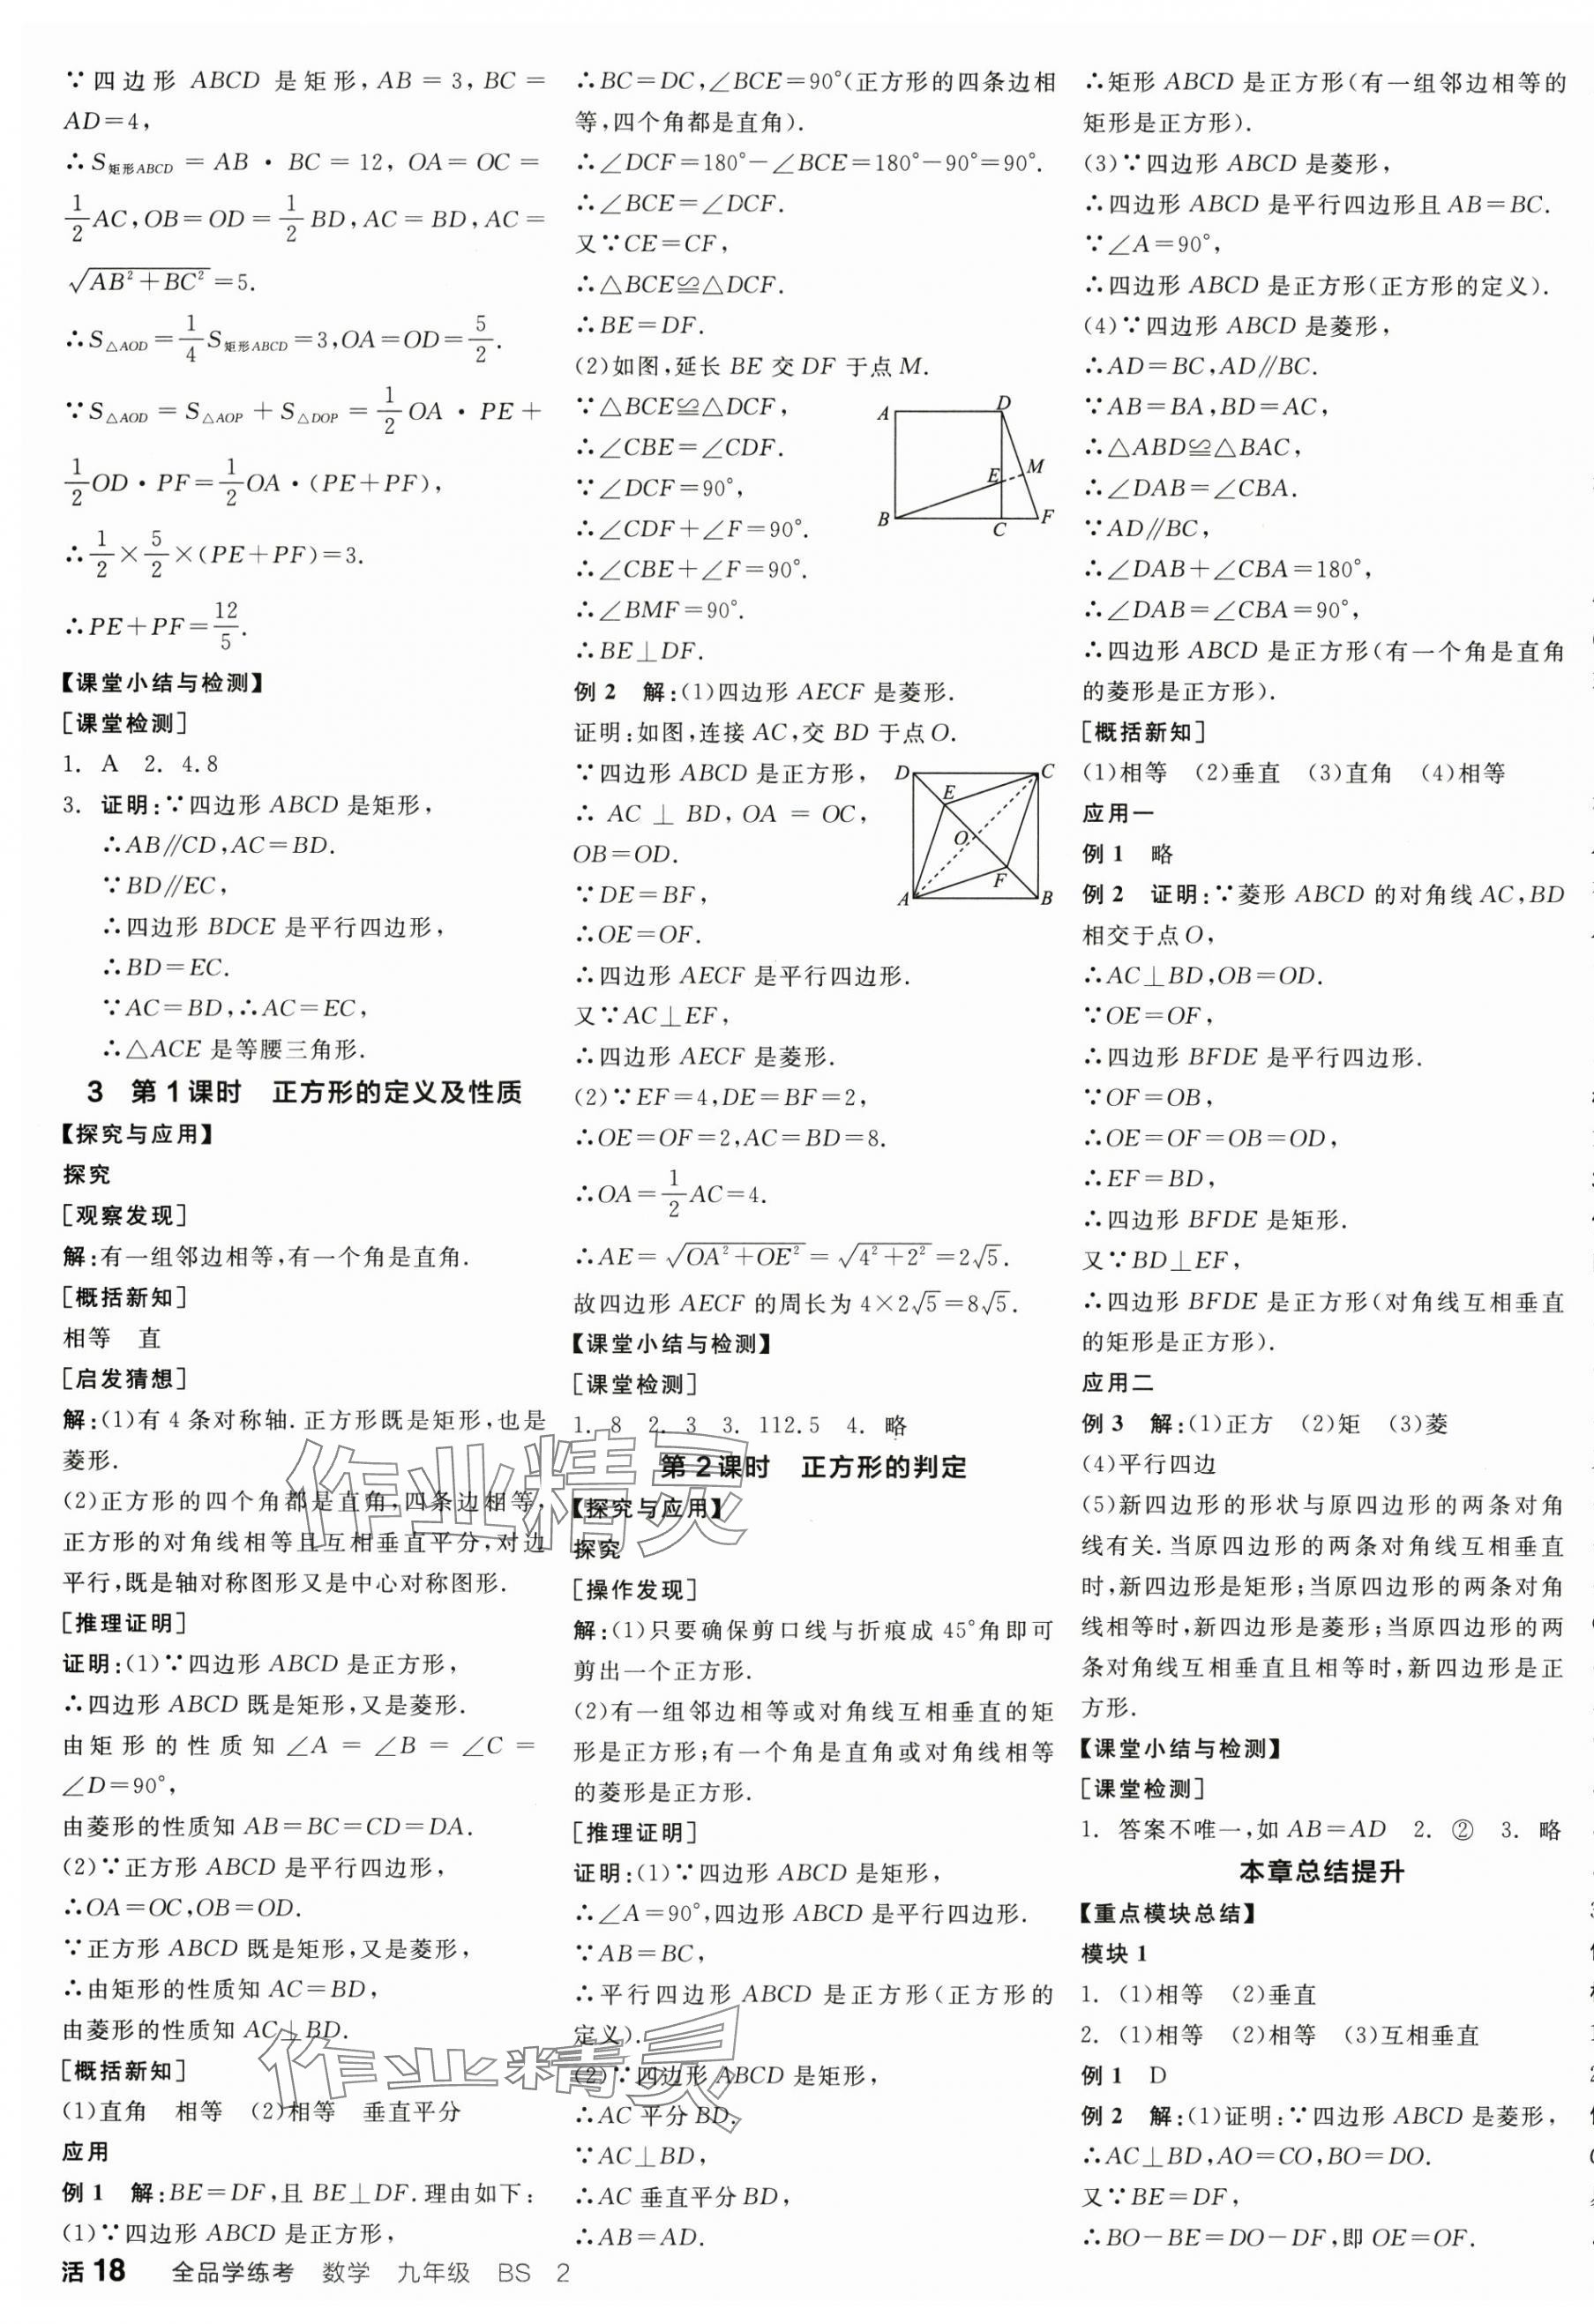 ∵四边形 ABCD 是矩形,AB=3,BC=
AD=4,
∴S矩形ABCD=AB·BC=12,OA=OC=
1/2AC,OB=OD=1/2BD,AC=BD,AC=
√(AB²+BC²)=5.
∴S△AOD=1/4S矩形ABCD=3,OA=OD=5/2.
∵S△AOD=S△AOP+S△DOP=1/2OA·PE+
1/2OD·PF=1/2OA·(PE+PF),
∴1/2×5/2×(PE+PF)=3.
∴PE+PF=12/5.
【课堂小结与检测】
[课堂检测]
1. A 2. 4.8
3. 证明:∵四边形 ABCD 是矩形,
∴AB∥CD,AC=BD.
∵BD∥EC,
∴四边形 BDCE 是平行四边形,
∴BD=EC.
∵AC=BD,∴AC=EC,
∴△ACE 是等腰三角形.
3 第1课时 正方形的定义及性质
【探究与应用】
探究
[观察发现]
解:有一组邻边相等,有一个角是直角.
[概括新知]
相等 直
[启发猜想]
解:(1)有 4 条对称轴.正方形既是矩形,也是
菱形.
(2)正方形的四个角都是直角,四条边相等,
正方形的对角线相等且互相垂直平分,对边
平行,既是轴对称图形又是中心对称图形.
[推理证明]
证明:(1)∵四边形 ABCD 是正方形,
∴四边形 ABCD 既是矩形,又是菱形.
由矩形的性质知∠A=∠B=∠C=
∠D=90°,
由菱形的性质知 AB=BC=CD=DA.
(2)∵正方形 ABCD 是平行四边形,
∴OA=OC,OB=OD.
∵正方形 ABCD 既是矩形,又是菱形,
∴由矩形的性质知 AC=BD,
由菱形的性质知 AC⊥BD.
[概括新知]
(1)直角 相等 (2)相等 垂直平分
应用
例1 解:BE=DF,且 BE⊥DF.理由如下:
(1)∵四边形 ABCD 是正方形,
∴BC=DC,∠BCE=90°(正方形的四条边相
等,四个角都是直角).
∴∠DCF=180°-∠BCE=180°-90°=90°.
∴∠BCE=∠DCF.
又∵CE=CF,
∴△BCE≌△DCF.
∴BE=DF.
(2)如图,延长 BE 交 DF 于点 M.
∵△BCE≌△DCF,
∴∠CBE=∠CDF.
∵∠DCF=90°,
∴∠CDF+∠F=90°.
∴∠CBE+∠F=90°.
∴∠BMF=90°.
∴BE⊥DF.
A D
E M
B C F
例2 解:(1)四边形 AECF 是菱形.
证明:如图,连接 AC,交 BD 于点 O.
∵四边形 ABCD 是正方形,
∴AC⊥BD,OA=OC,
OB=OD.
∵DE=BF,
∴OE=OF.
D C
E
O
F
A B
∴四边形 AECF 是平行四边形.
又∵AC⊥EF,
∴四边形 AECF 是菱形.
(2)∵EF=4,DE=BF=2,
∴OE=OF=2,AC=BD=8.
∴OA=1/2AC=4.
∴AE=√(OA²+OE²)=√(4²+2²)=2√5.
故四边形 AECF 的周长为 4×2√5=8√5.
【课堂小结与检测】
[课堂检测]
1. 8 2. 3 3. 112.5 4. 略
第2课时 正方形的判定
【探究与应用】
探究
[操作发现]
解:(1)只要确保剪口线与折痕成 45°角即可
剪出一个正方形.
(2)有一组邻边相等或对角线互相垂直的矩
形是正方形;有一个角是直角或对角线相等
的菱形是正方形.
[推理证明]
证明:(1)∵四边形 ABCD 是矩形,
∴∠A=90°,四边形 ABCD 是平行四边形.
∵AB=BC,
∴平行四边形 ABCD 是正方形(正方形的
定义).
(2)∵四边形 ABCD 是矩形,
∴AC 平分 BD.
∵AC⊥BD,
∴AC 垂直平分 BD,
∴AB=AD.
∴矩形 ABCD 是正方形(有一组邻边相等的
矩形是正方形).
(3)∵四边形 ABCD 是菱形,
∴四边形 ABCD 是平行四边形且 AB=BC.
∵∠A=90°,
∴四边形 ABCD 是正方形(正方形的定义).
(4)∵四边形 ABCD 是菱形,
∴AD=BC,AD∥BC.
∵AB=BA,BD=AC,
∴△ABD≌△BAC,
∴∠DAB=∠CBA.
∵AD∥BC,
∴∠DAB+∠CBA=180°,
∴∠DAB=∠CBA=90°,
∴四边形 ABCD 是正方形(有一个角是直角
的菱形是正方形).
[概括新知]
(1)相等 (2)垂直 (3)直角 (4)相等
应用一
例1 略
例2 证明:∵菱形 ABCD 的对角线 AC,BD
相交于点 O,
∴AC⊥BD,OB=OD.
∵OE=OF,
∴四边形 BFDE 是平行四边形.
∵OF=OB,
∴OE=OF=OB=OD,
∴EF=BD,
∴四边形 BFDE 是矩形.
又∵BD⊥EF,
∴四边形 BFDE 是正方形(对角线互相垂直
的矩形是正方形).
应用二
例3 解:(1)正方 (2)矩 (3)菱
(4)平行四边
(5)新四边形的形状与原四边形的两条对角
线有关.当原四边形的两条对角线互相垂直
时,新四边形是矩形;当原四边形的两条对角
线相等时,新四边形是菱形;当原四边形的两
条对角线互相垂直且相等时,新四边形是正
方形.
【课堂小结与检测】
[课堂检测]
1. 答案不唯一,如 AB=AD 2. ② 3. 略
本章总结提升
【重点模块总结】
模块1
1. (1)相等 (2)垂直
2. (1)相等 (2)相等 (3)互相垂直
例1 D
例2 解:(1)证明:∵四边形 ABCD 是菱形,
∴AC⊥BD,AO=CO,BO=DO.
又∵BE=DF,
∴BO-BE=DO-DF,即 OE=OF.
作业精灵
作业精灵
活18 全品学练考 数学 九年级 BS 2